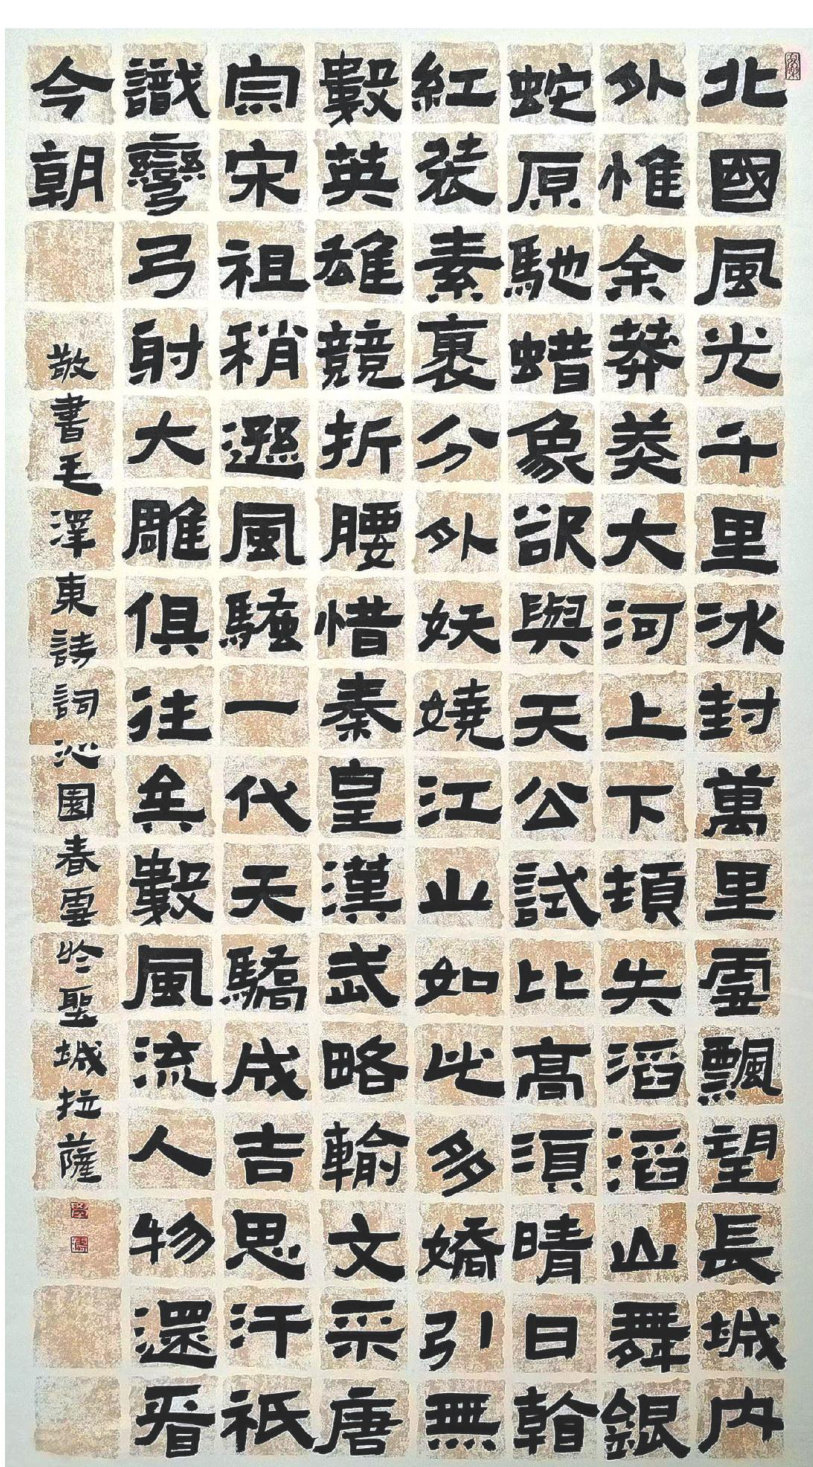 北國風光千里冰封萬里雪飄望長城内
外惟余莽莽大河上下頓失滔滔山舞銀
蛇原馳蜡象欲與天公試比高須晴日看
紅裝素裹分外妖嬈江山如此多嬌引無
數英雄競折腰惜秦皇漢武略輸文采唐
宗宋祖稍遜風騷一代天驕成吉思汗祇
識彎弓射大雕俱往矣數風流人物還看
今朝
敬書毛澤東詩詞沁園春雪於聖城拉薩